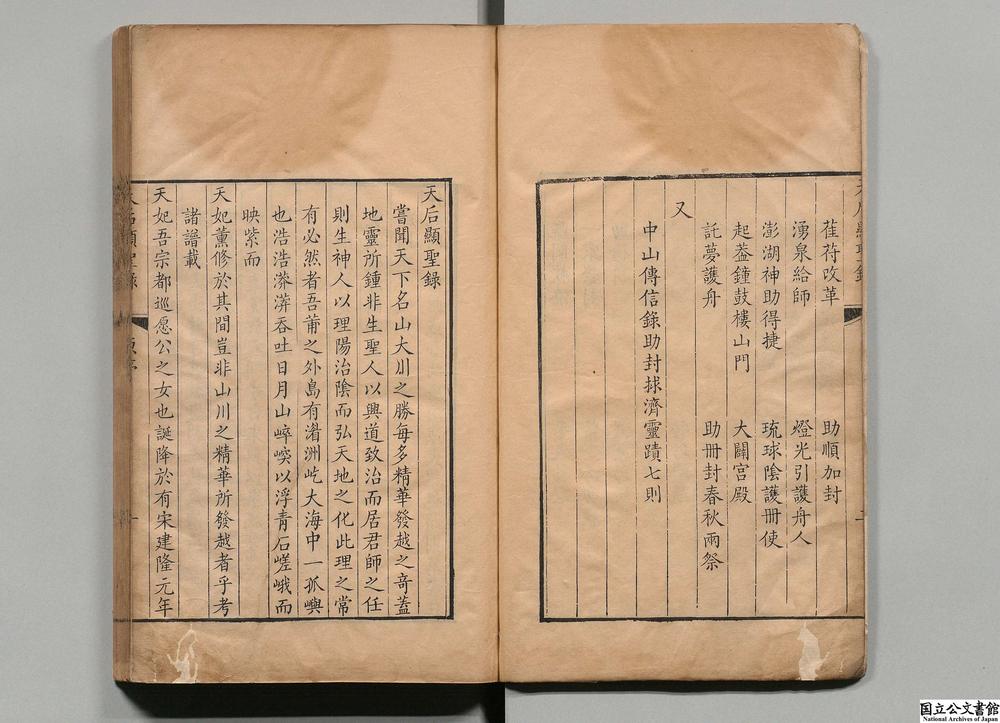 萑苻改革　助順加封
湧泉給師　燈光引護舟人
澎湖神助得捷　琉球陰護冊使
起葢鐘鼓樓山門　大闢宮殿
託夢護舟　助冊封春秋兩祭
又
中山傳信錄助封拯濟靈蹟七則
天后顯聖録
嘗聞天下名山大川之勝每多精華發越之竒蓋
地靈所鍾非生聖人以興道致治而居君師之任
則生神人以理陽治陰而弘天地之化此理之常
有必然者吾莆之外島有湄洲屹大海中一孤嶼
也浩浩漭漭吞吐日月山崪㟧以浮青石嵯峨而
映紫而
天妃薰修於其間豈非山川之精華所發越者乎考
諸譜載
天妃吾宗都巡愿公之女也誕降於有宋建隆元年
国立公文書館
National Archives of Japan